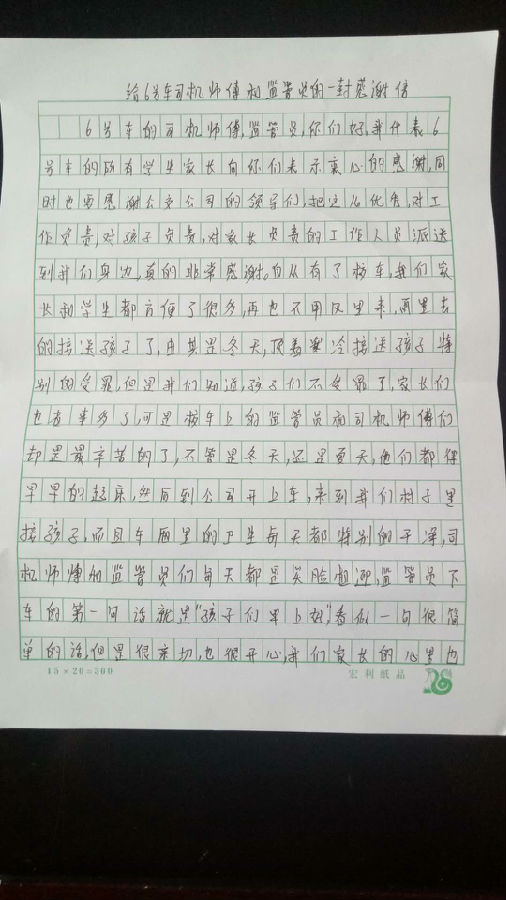 给6号车司机师傅和监管员的一封感谢信
6号车的司机师傅,监管员,你们好,我代表6
号车的所有学生家长向你们表示衷心的感谢,同
时也要感谢公交公司的领导们,把这么优秀,对工
作负责,对孩子负责,对家长负责的工作人员派送
到我们身边,真的非常感谢。自从有了校车,我们家
长和学生都方便了很多,再也不用风里来,雨里去
的接送孩子了,由其是冬天,顶着寒冷接送孩子特
别的受罪,但是我们知道,孩子们不受罪了,家长们
也省事多了,可是校车上的监管员和司机师傅们
却是最辛苦的了,不管是冬天,还是夏天,他们都得
早早的起床,然后到公司开上车,来到我们村子里
接孩子,而且车厢里的卫生每天都特别的干净,司
机师傅和监管员们每天都是笑脸相迎,监管员下
车的第一句话就是"孩子们早上好",看似一句很简
单的话,但是很亲切,也很开心,我们家长的心里也
15×20=300
宏利纸品